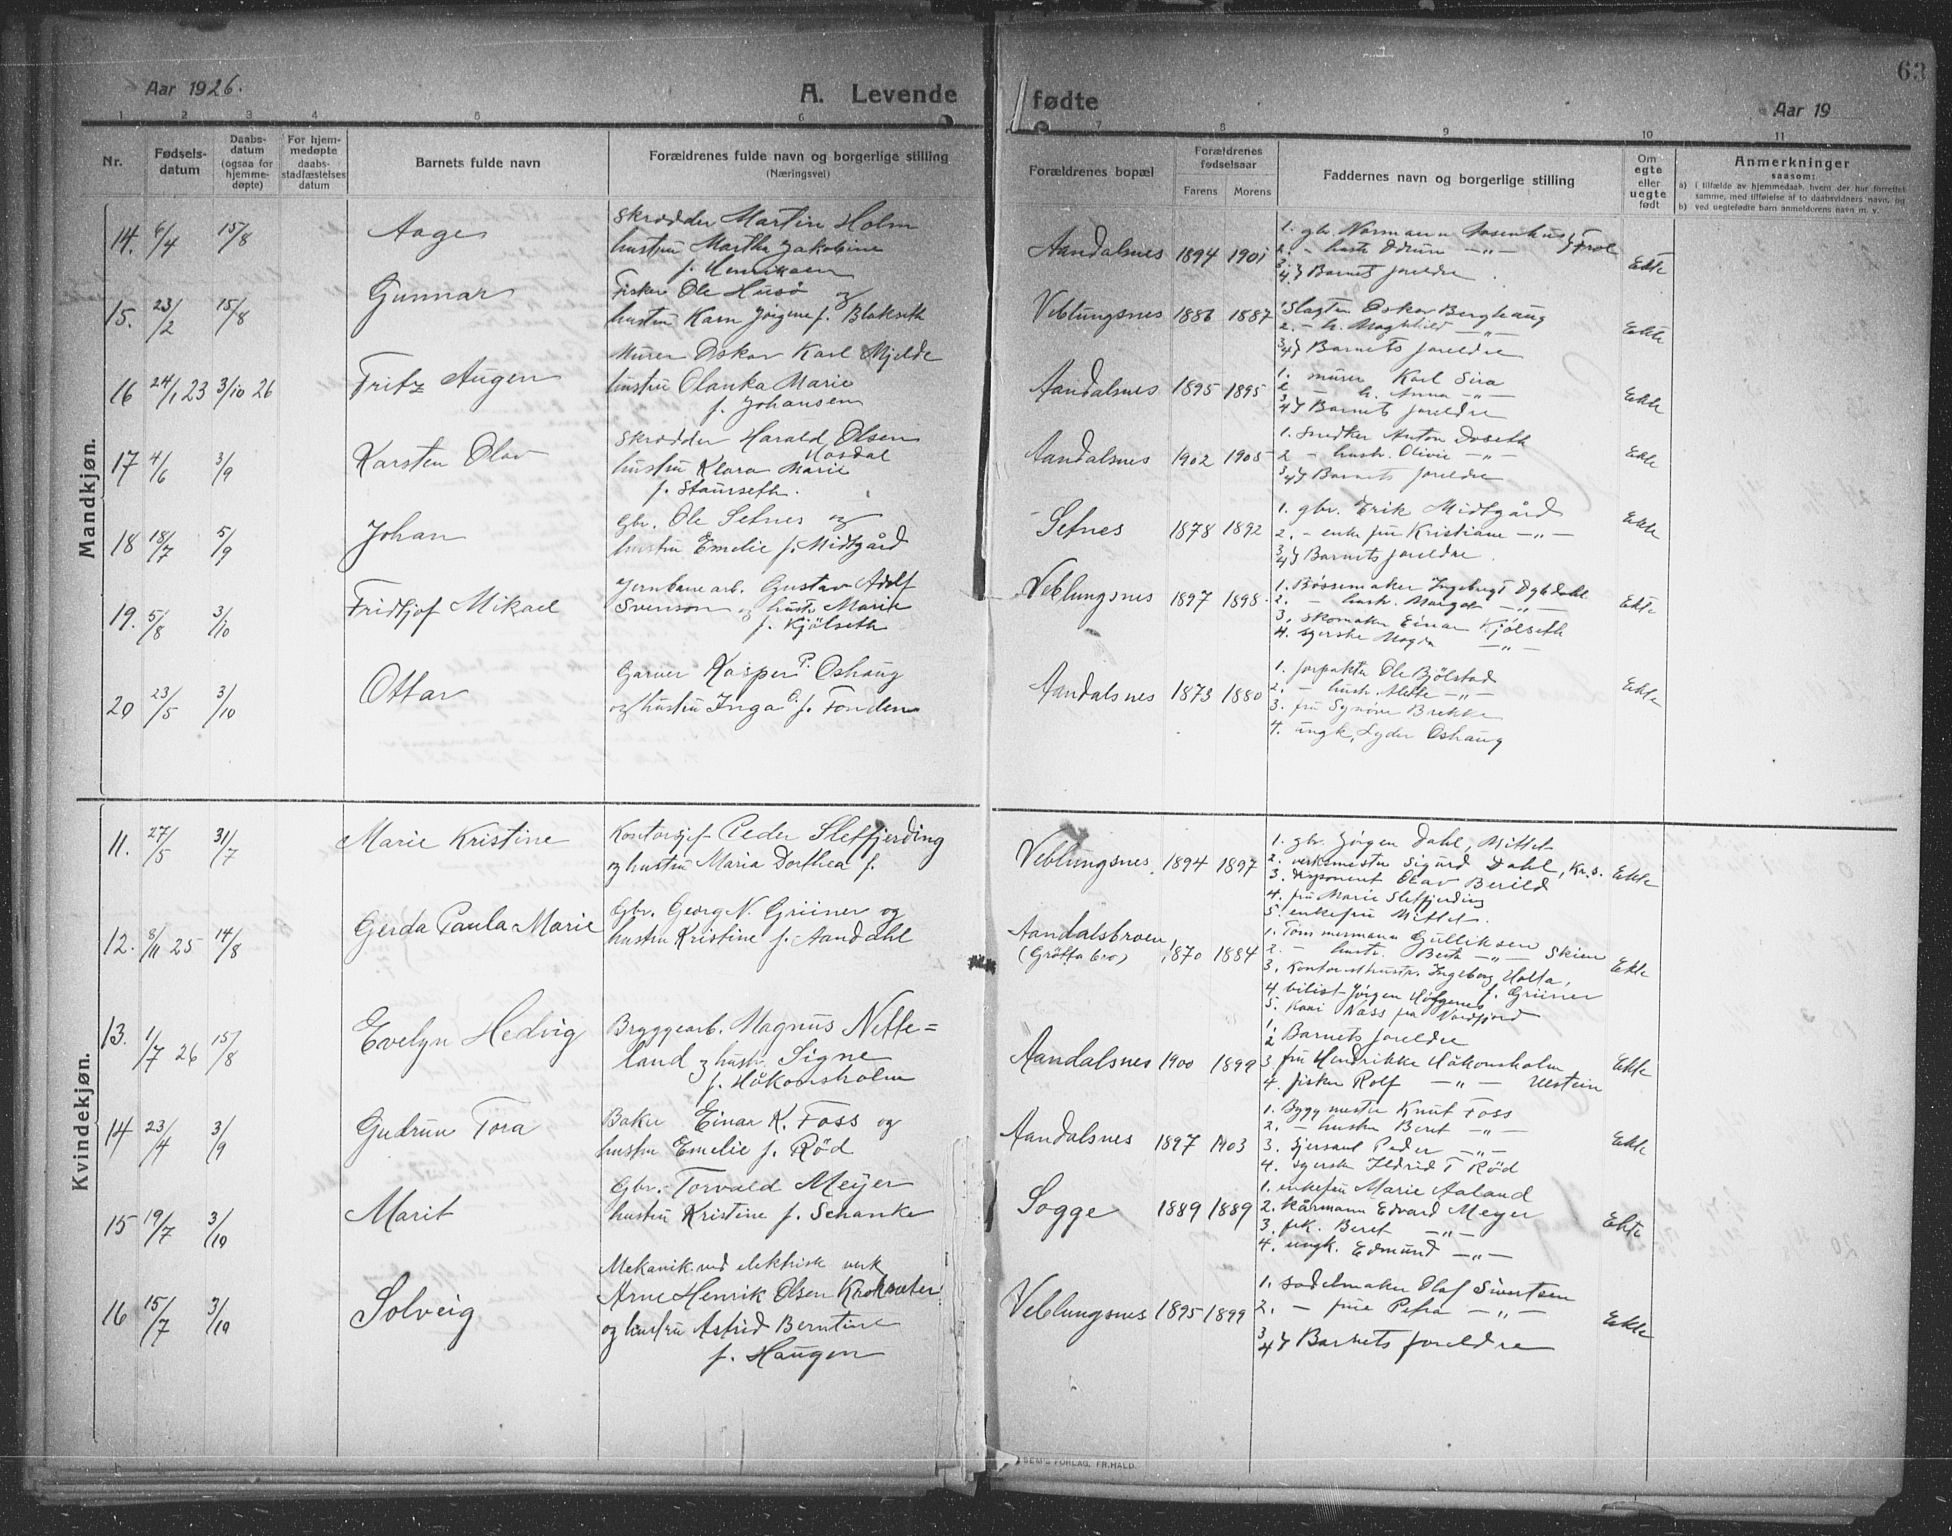 63
Aar 1926.
A. Levende fødte
Aar 19
1 2 3 4 5 6 7 8 9 10 11
Nr.
Fødsels-
datum
Daabs-
datum
(ogsaa for
hjemme-
døpte)
For hjem-
medøpte
daabs-
stadfæstelses
datum
Barnets fulde navn
Forældrenes fulde navn og borgerlige stilling
(Næringsvei)
Forældrenes bopæl
Forældrenes
fødselsaar
Farens Morens
Faddernes navn og borgerlige stilling
Om
egte
eller
uegte
født
Anmerkninger
saasom:
a) i tilfælde av hjemmedaab, hvem der har forrettet
samme, med tilføielse af to daabsvidners navn, og
b) ved uegtefødte barn anmelderens navn m. v.
Mandkjøn.
14. 6/4 15/8 Aage
Skrædder Martin Holm
hustru Marthe Jakobine
f. Henriksen
Aandalsnes 1894 1901
1. gbr. Normann
2. - hustr. -"-
3. 4. } Barnets foreldre
Ekte
15. 23/2 15/8 Gunnar
Fisker Ole Husø og
hustru Karn Jørgine f. Blakseth
Veblungsnes 1886 1887
1 Slagter Oskar Berghaug
2. - h. Maghild -"-
3/4 } Barnets foreldre
Ekte
16 24/1 23 3/10 26 Fritz Augen
Murer Oskar Karl Mjelde
hustru Olanka Marie
f. Johansen
Aandalsnes 1895 1895
1. murer Karl Sira
2. - h. Anna -"-
3/4 } Barnets foreldre
Ekte
17 4/6 3/9 Karsten Olav
Skrædder Harald Olsen
hustru Klara Marie
f. Staurseth.
Aandalsnes 1902 1905
1. Snedker Anton
2 - hustr. Olivie -"-
3/4 } Barnets foreldre
Ekte
18 18/7 5/9 Johan
Gbr. Ole Setnes og
hustru Emelie f. Midtgård
Setnes 1878 1892
1. gbr. Erik Midtgård
2. - enkefru Kristiane -"-
3/4 } Barnets foreldre.
Ekte
19. 5/8 3/10 Fridtjof Mikael
Jernbanearb. Gustav Adolf
Svenson og hustr. Marie
f. Kjölseth
Veblungsnes 1897 1898.
1. Bøssemaker Ingebrigt Dybdahl
2. - hustr. Margot -"-
3. Skomaker Einar Kjölseth
4. syerske Magna -"-
Ekte
20 23/5 3/10 Ottar
Garver Kasper P. Oshaug
og hustru Inga O. f. Fonden
Aandalsnes 1873 1880
1. forpakter Ole Bjölstad
2. - hustr. Mette -"-
3. fru Synøve Brekke
4. ungk. Lyder Oshaug
Ekte
Kvindekjøn.
11. 27/5 31/7 Marie Kristine
Kontorsjef Peder Sletfjerding
og hustru Maria Dorthea f.
Veblungsnes 1894 1897
1. gbr. Jörgen Dahl, Mittet
2. verksmester Sigurd Dahl, Kr.s.
3. disponent Olav Berild
4. fru Marie Sletfjerding
5. enkefru Mittet.
Ekte
12. 8/11 25 14/8 Gerda Paula Marie
Gbr. Georg N. Grüner og
hustru Kristine f. Aandahl
Aandalsbroen,
(Gröttabro) 1870 1884
1. Tömmermann Gulliksen
2. - hustr. Berth -"- Skien
3. Kontoristhustr. Ingeborg Holta,
f. Grüner
4. bilist Jörgen
5. Kaari Næss fra Nordfjord
Ekte
13. 1/7 26 15/8 Evelyn Hedvig
Bryggearb. Magnus Nette=
land og hustr. Signe
f. Håkonsholm
Aandalsnes 1900 1899
1. 2 Barnets foreldre
3 fru Hendrikke Håkonsholm
4. fisker Rolf -"- Ulstein
Ekte
14 23/4 3/9 Gudrun Tora
Baker Einar K. Foss og
hustru Emelie f. Rød
Aandalsnes 1897 1903
1. Byggmester Knut Foss
2. - hustru Beret -"-
3. Peder -"-
4. syerske Ildrid T Rød
Ekte
15 19/7 3/10 Marit
Gbr. Torvald Meyer
hustru Kristine f. Schanke
Sogge 1889 1889
1. enkefru Marie Aaland
2. kårmann Edvard Meyer
3. frk. Beret -"-
4. ungk. Edmund -"-
Ekte
16 15/7 3/10 Solveig
Mekanik. ved elektrisk verk
Arne Henrik Olsen Kroksæter
og hustru Astrid Berntine
f. Haugen
Veblungsnes 1895 1899
1. sadelmaker Olaf Sivertsen
2. - frue Petra -"-
3/4 } Barnets foreldre
Ekte
SEM'S FORLAG, FR.HALD.